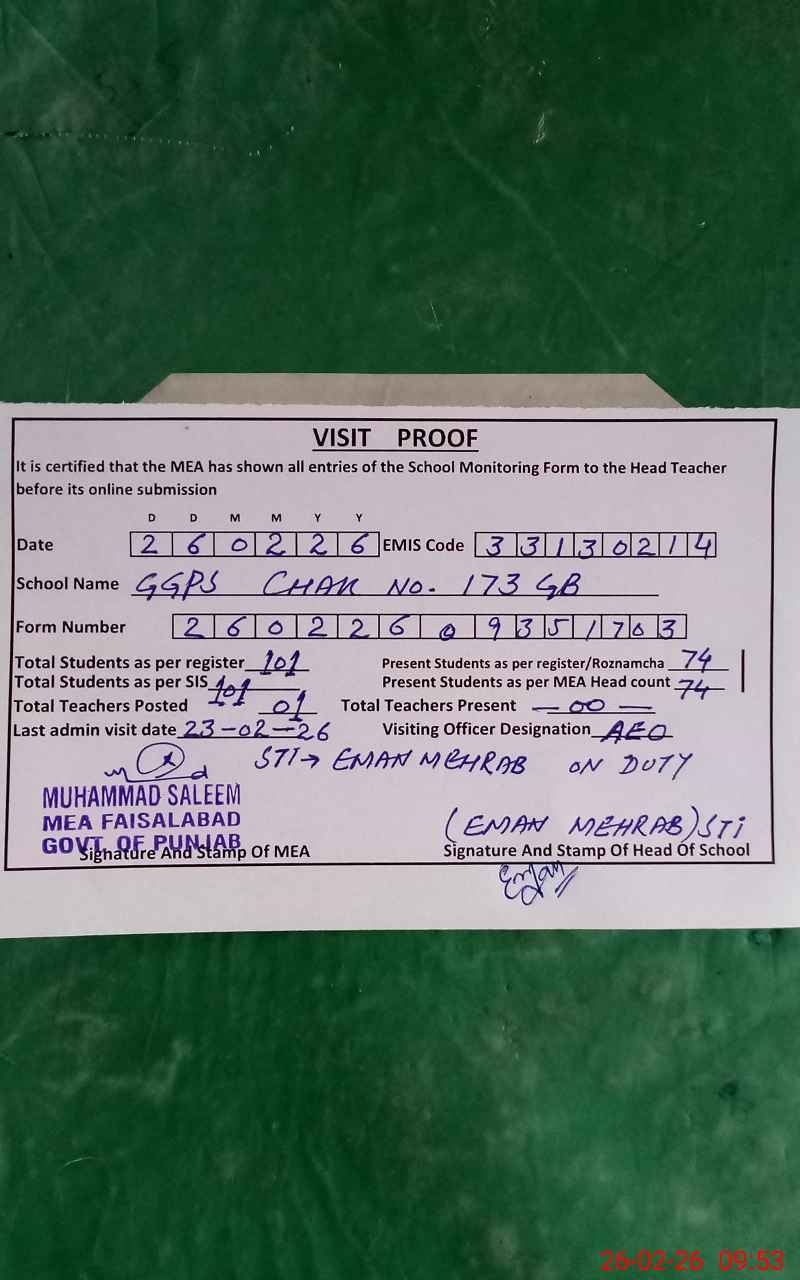 VISIT PROOF
It is certified that the MEA has shown all entries of the School Monitoring Form to the Head Teacher
before its online submission
D D M M Y Y
Date 2 6 0 2 2 6 EMIS Code 3 3 1 3 0 2 1 4
School Name GGPS CHAK NO. 173 GB
Form Number 2 6 0 2 2 6 0 9 3 5 1 7 0 3
Total Students as per register 101 Present Students as per register/Roznamcha 74
Total Students as per SIS 101 Present Students as per MEA Head count 74
Total Teachers Posted 01 Total Teachers Present — 00 —
Last admin visit date 23-02-26 Visiting Officer Designation AEO
STI → EMAN MEHRAB ON DUTY
MUHAMMAD SALEEM
MEA FAISALABAD
GOVT. OF PUNJAB
(EMAN MEHRAB) STI
Signature And Stamp Of MEA Signature And Stamp Of Head Of School
Eman
26-02-26 09:53